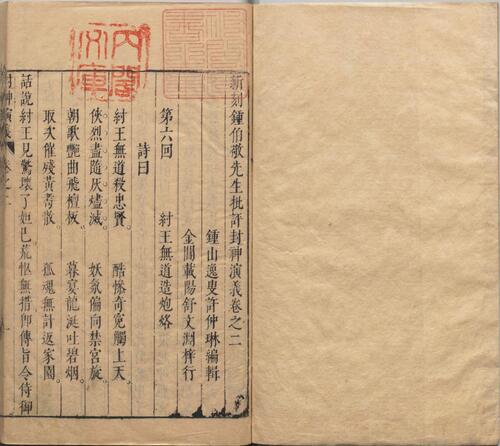 新刻鍾伯敬先生批評封神演義卷之二
鍾山逸叟許仲琳編輯
金閶載陽舒文淵梓行
第六回　紂王無道造炮烙
詩曰
紂王無道殺忠賢。　酷慘奇冤觸上天。
俠烈盡隨灰燼滅。　妖氛偏向禁宮旋。
朝歌艷曲飛檀板。　暮宴龍涎吐碧烟。
取次催殘黃耇散。　孤魂無計返家園。
話說紂王見驚壞了妲己慌恓無措卽傳旨令侍御
封神演義　卷之二　一
內閣文庫